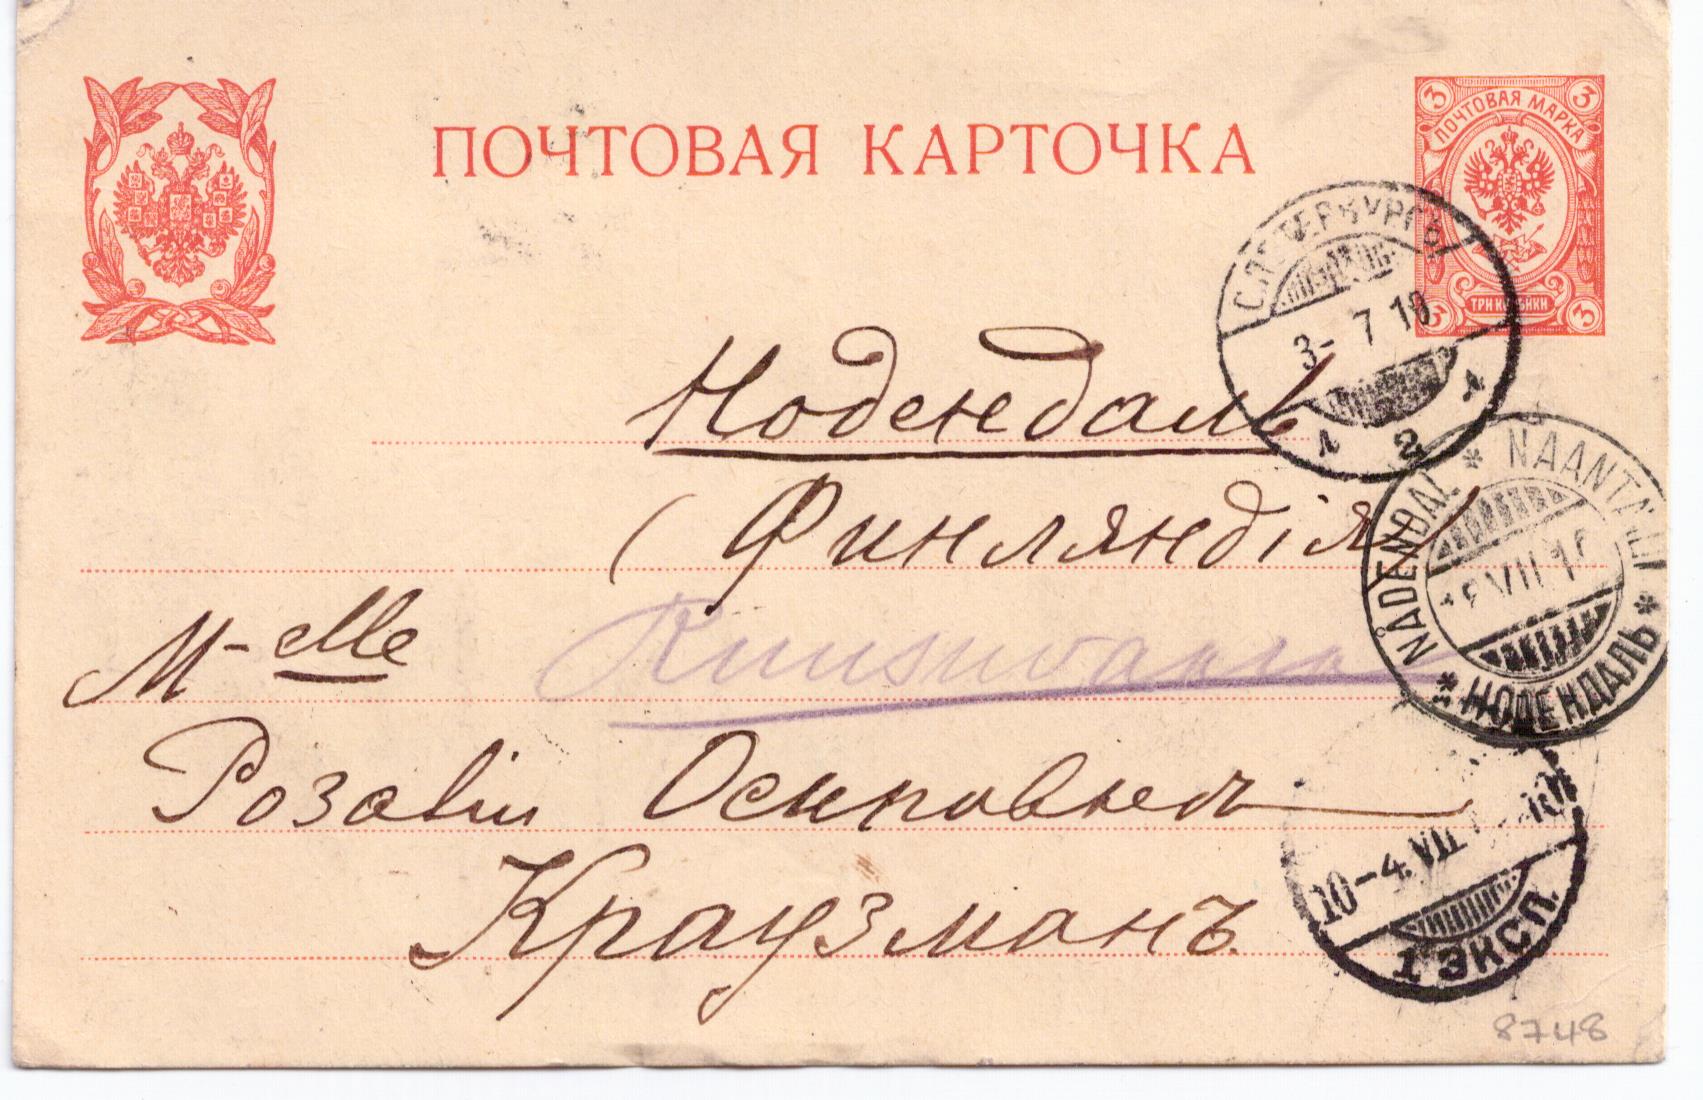 ПОЧТОВАЯ КАРТОЧКА
3 3
ПОЧТОВАЯ МАРКА
ТРИ КОПѢЙКИ
3 3
С.ПЕТЕРБУРГЪ
3- 7 10
1 2 1
Нодендаль
(Финляндія)
NÅDENDAL * NAANTALI * НОДЕНДАЛЬ *
VII.10
М-elle
Розаліи Осиповнѣ
Краузманъ
10-4 VII
1 ЭКСП.
8748